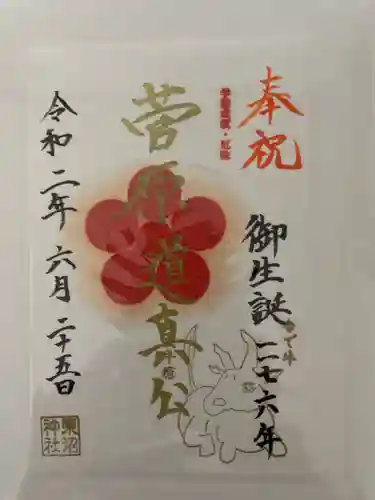 奉祝
御生誕一一七六年
なで牛
菅原道真公
令和二年六月二十五日
東沼
神社